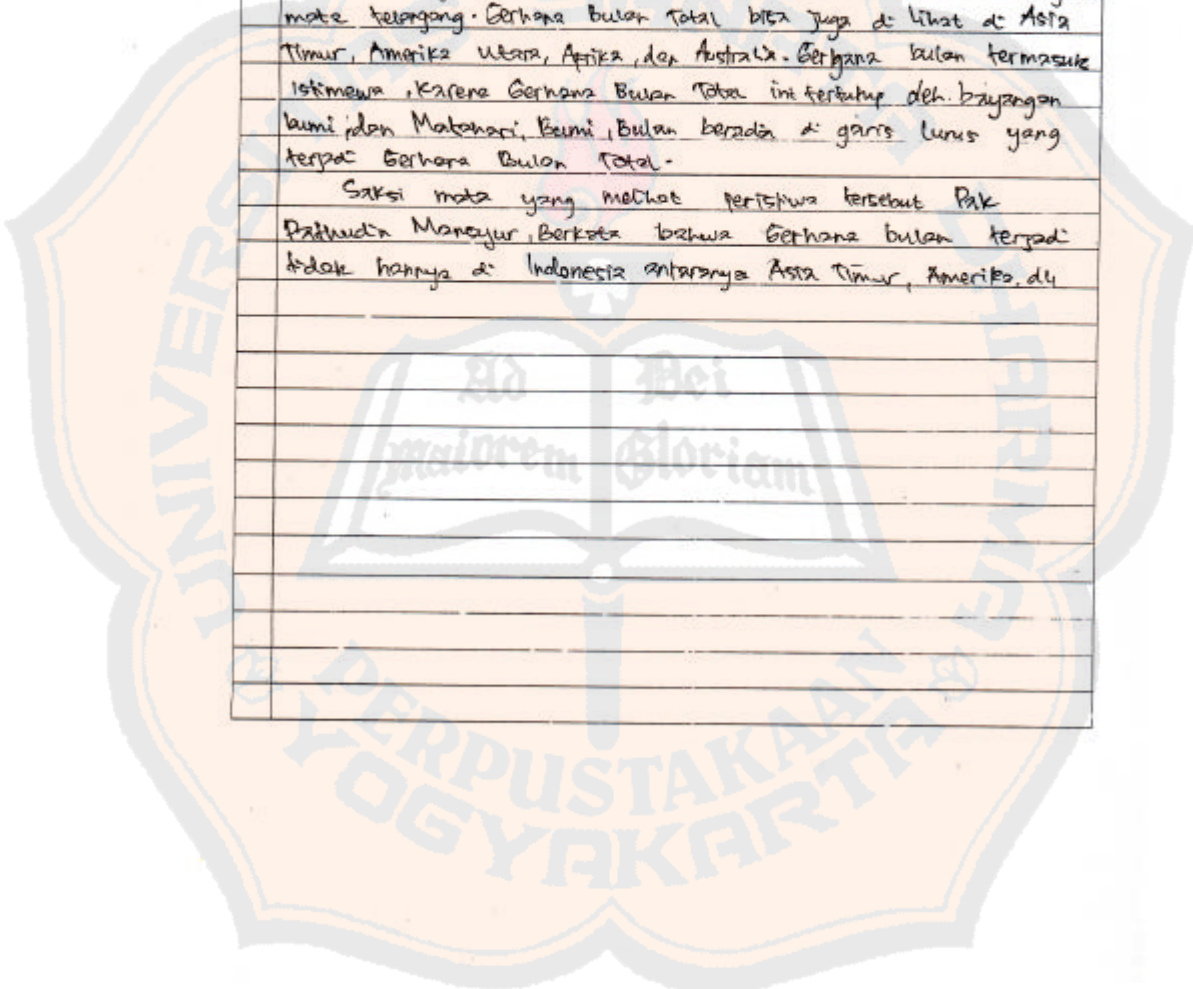 mata telangang. Gerhana Bulan Total bisa juga di Lihat di Asia
Timur, Amerika Utara, Aprika, dan Australia. Gerhana bulan termasuk
istimewa, Karena Gerhana Bulan Total ini tertutup oleh bayangan
bumi, dan Matahari, Bumi, Bulan berada di garis lurus yang
terjadi Gerhana Bulan Total.
Saksi mata yang melihat peristiwa tersebut Pak
Mansyur, Berkata bahwa Gerhana bulan terjadi
tidak hannya di Indonesia antaranya Asia Timur, Amerika, dll
Ad Dei
maiorem Gloriam
UNIVERSITAS DHARMA
PERPUSTAKAAN
YOGYAKARTA